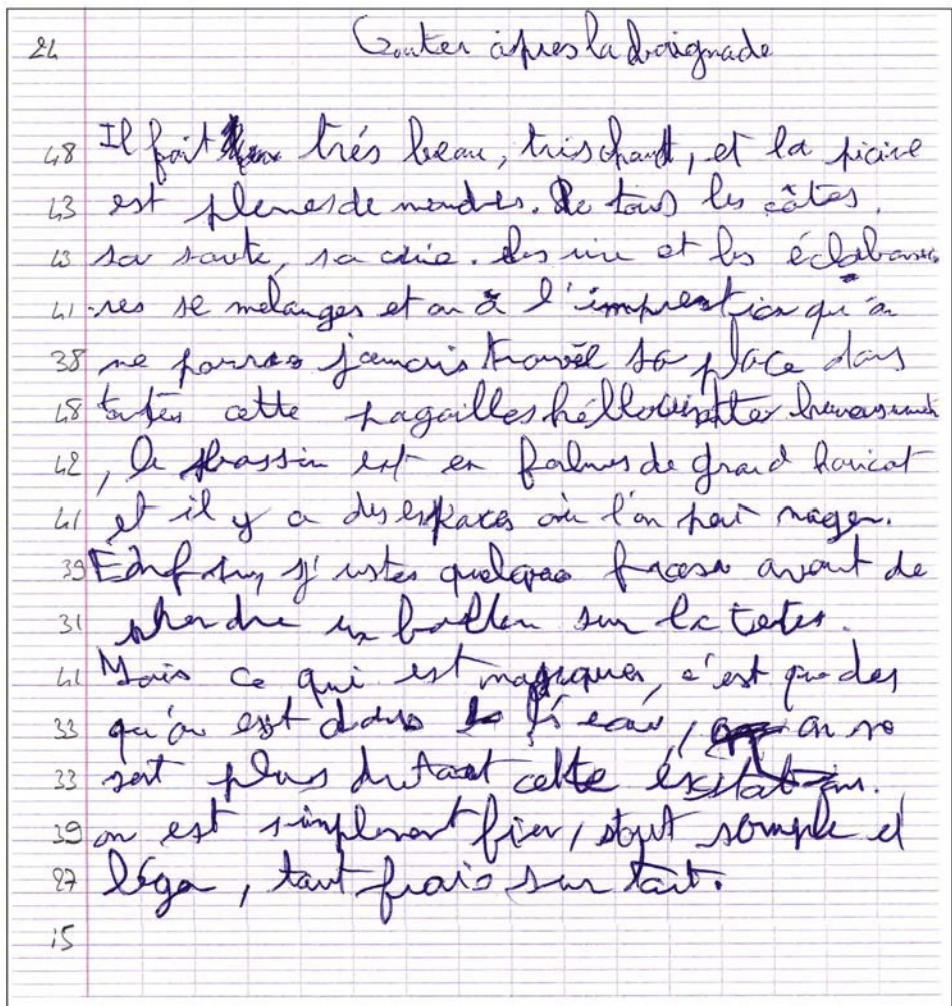 24 Gouter après la baignade
48 Il fait très beau, très chaud, et la picine
43 est plenes de mondes. De tous les côtes.
43 sa saute, sa crie. les rire et les éclabousu
41 res se melanges et on à l'impression qu'on
38 ne pourras jamais trouvé sa place dans
48 toutes cette pagailles
42 , le bassin est en formes de grand haricot
41 et il y a des espaces où l'on peu nager.
39 Enf justes quelques avant de
31 prendre un ballon sur la tetes.
41 Mais ce qui est magiques, c'est que des
33 qu'on est dans l'eau, on ne
33 sent plus dutout cette
39 on est simplement bien, tout simple et
27 léger, tout frais sur tout.
15